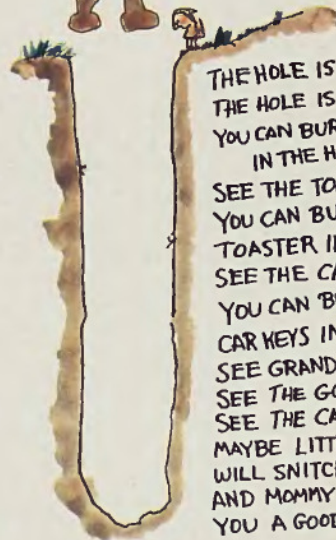 THE HOLE IS
THE HOLE IS
YOU CAN BUR
IN THE H
SEE THE TOA
YOU CAN BU
TOASTER I
SEE THE CA
YOU CAN B
CAR KEYS IN
SEE GRAND
SEE THE GO
SEE THE CA
MAYBE LITT
WILL SNITC
AND MOMMY
YOU A GOOD